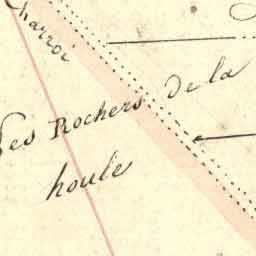 charroi
Les Rochers de la
houle